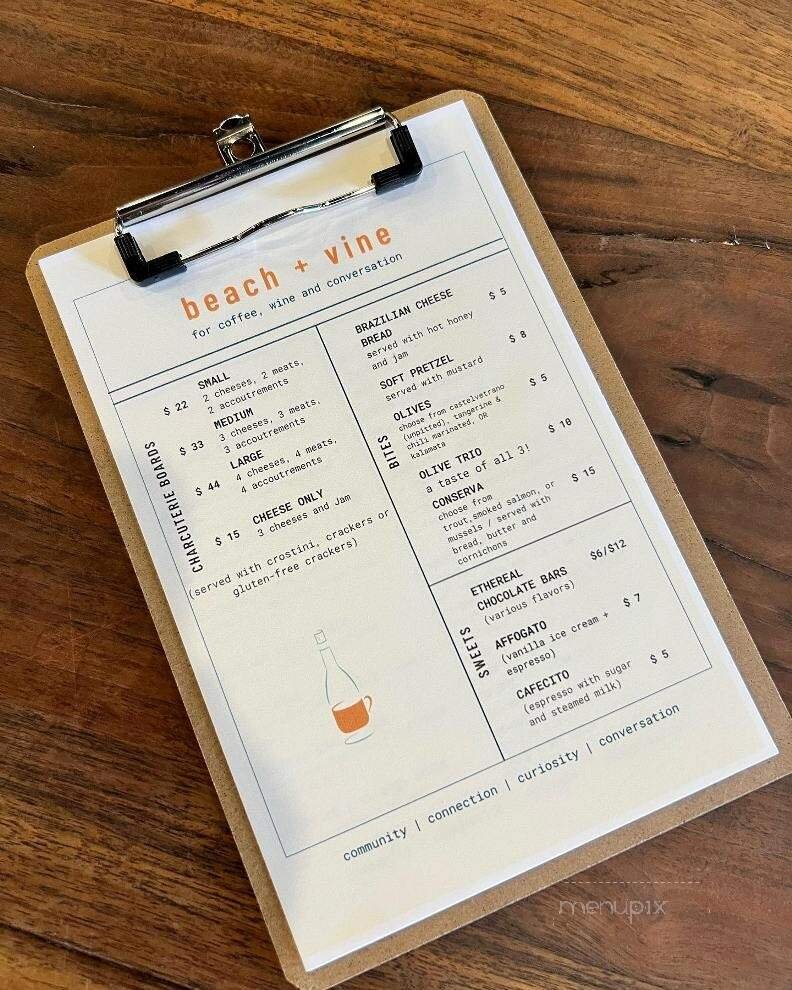 beach + vine
for coffee, wine and conversation
CHARCUTERIE BOARDS
SMALL
$ 22 2 cheeses, 2 meats,
2 accoutrements
MEDIUM
$ 33 3 cheeses, 3 meats,
3 accoutrements
LARGE
$ 44 4 cheeses, 4 meats,
4 accoutrements
CHEESE ONLY
$ 15 3 cheeses and Jam
(served with crostini, crackers or
gluten-free crackers)
BITES
BRAZILIAN CHEESE $ 5
BREAD
served with hot honey
and jam
SOFT PRETZEL $ 8
served with mustard
OLIVES $ 5
choose from castelvetrano
(unpitted), tangerine &
chili marinated, OR
kalamata
OLIVE TRIO $ 10
a taste of all 3!
CONSERVA $ 15
choose from
trout,smoked salmon, or
mussels / served with
bread, butter and
cornichons
SWEETS
ETHEREAL $6/$12
CHOCOLATE BARS
(various flavors)
AFFOGATO $ 7
(vanilla ice cream +
espresso)
CAFECITO $ 5
(espresso with sugar
and steamed milk)
community | connection | curiosity | conversation
menupix